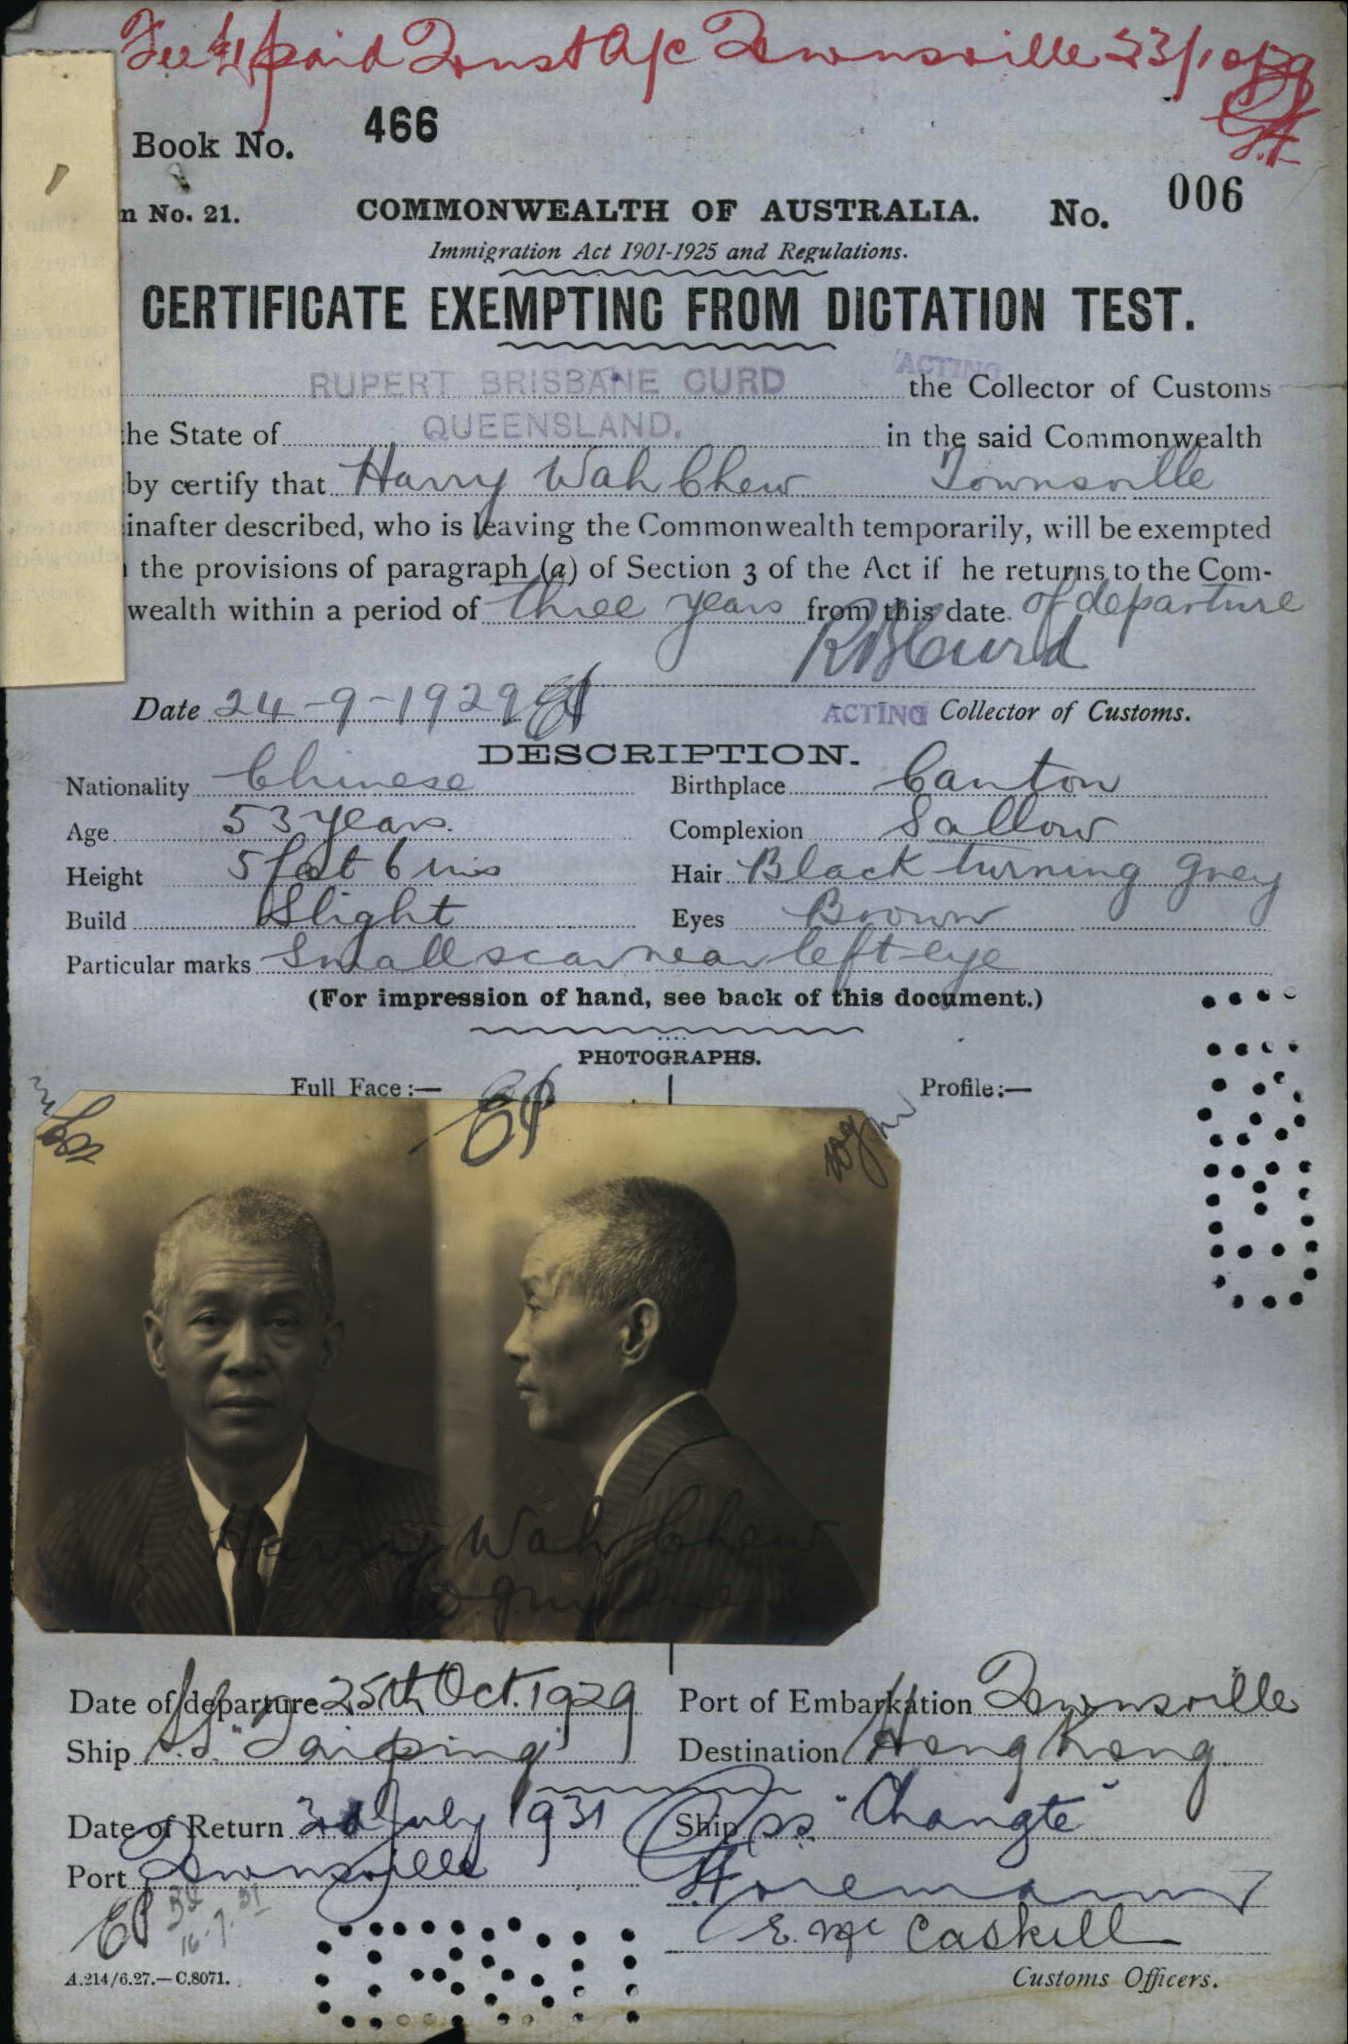 Fee £1 paid Trust A/c Townsville 23/10/29
Book No. 466
n No. 21. COMMONWEALTH OF AUSTRALIA. No. 006
Immigration Act 1901-1925 and Regulations.
CERTIFICATE EXEMPTING FROM DICTATION TEST.
RUPERT BRISBANE CURD ACTING the Collector of Customs
he State of QUEENSLAND. in the said Commonwealth
by certify that Harry Wah Chew Townsville
inafter described, who is leaving the Commonwealth temporarily, will be exempted
the provisions of paragraph (a) of Section 3 of the Act if he returns to the Com-
wealth within a period of three years from this date of departure
RBCurd
Date 24-9-1929 ACTING Collector of Customs.
DESCRIPTION.
Nationality Chinese Birthplace Canton
Age 53 years. Complexion Sallow
Height 5 feet 6 ins Hair Black turning grey
Build Slight Eyes Brown
Particular marks Small scar near left eye
(For impression of hand, see back of this document.)
PHOTOGRAPHS.
Full Face:— Profile:—
Harry Wah Chew
Date of departure 25th Oct. 1929 Port of Embarkation Townsville
Ship S.S. "Taiping" Destination Hong Kong
Date of Return 3d July 1931 Ship ss "Changte"
Port Townsville
E. Mc Caskill
16.7.31
A.214/6.27.—C.8071. Customs Officers.